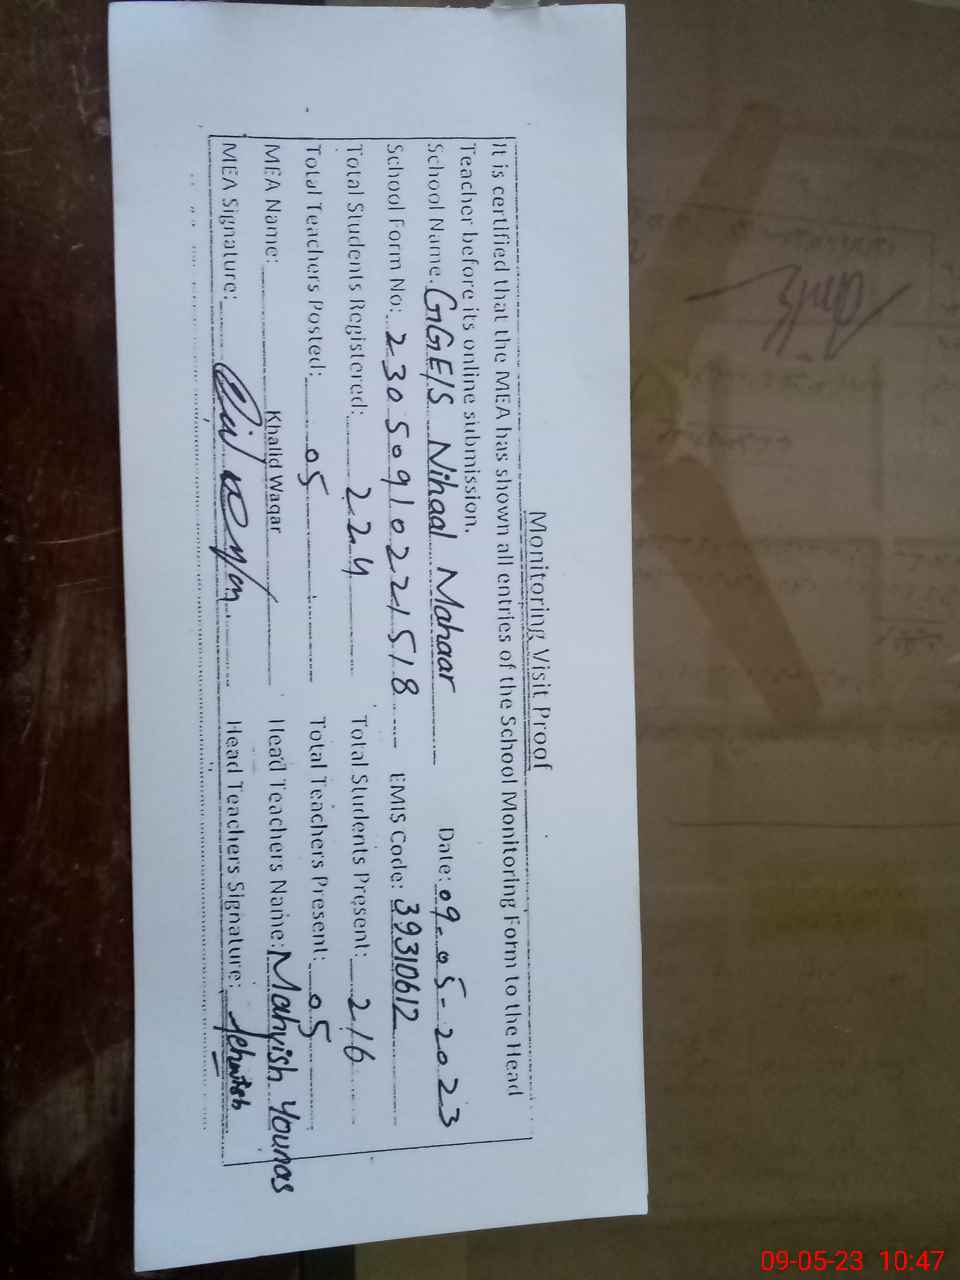 Monitoring Visit Proof
It is certified that the MEA has shown all entries of the School Monitoring Form to the Head
Teacher before its online submission.
School Name: GGE/S Nihaal Mahaar Date: 09-05-2023
School Form No: 23050910221518 EMIS Code: 39310612
Total Students Registered: 224 Total Students Present: 216
Total Teachers Posted: 05 Total Teachers Present: 05
MEA Name: Khalid Waqar Head Teachers Name: Mahvish Younas
MEA Signature: Head Teachers Signature:
09-05-23 10:47